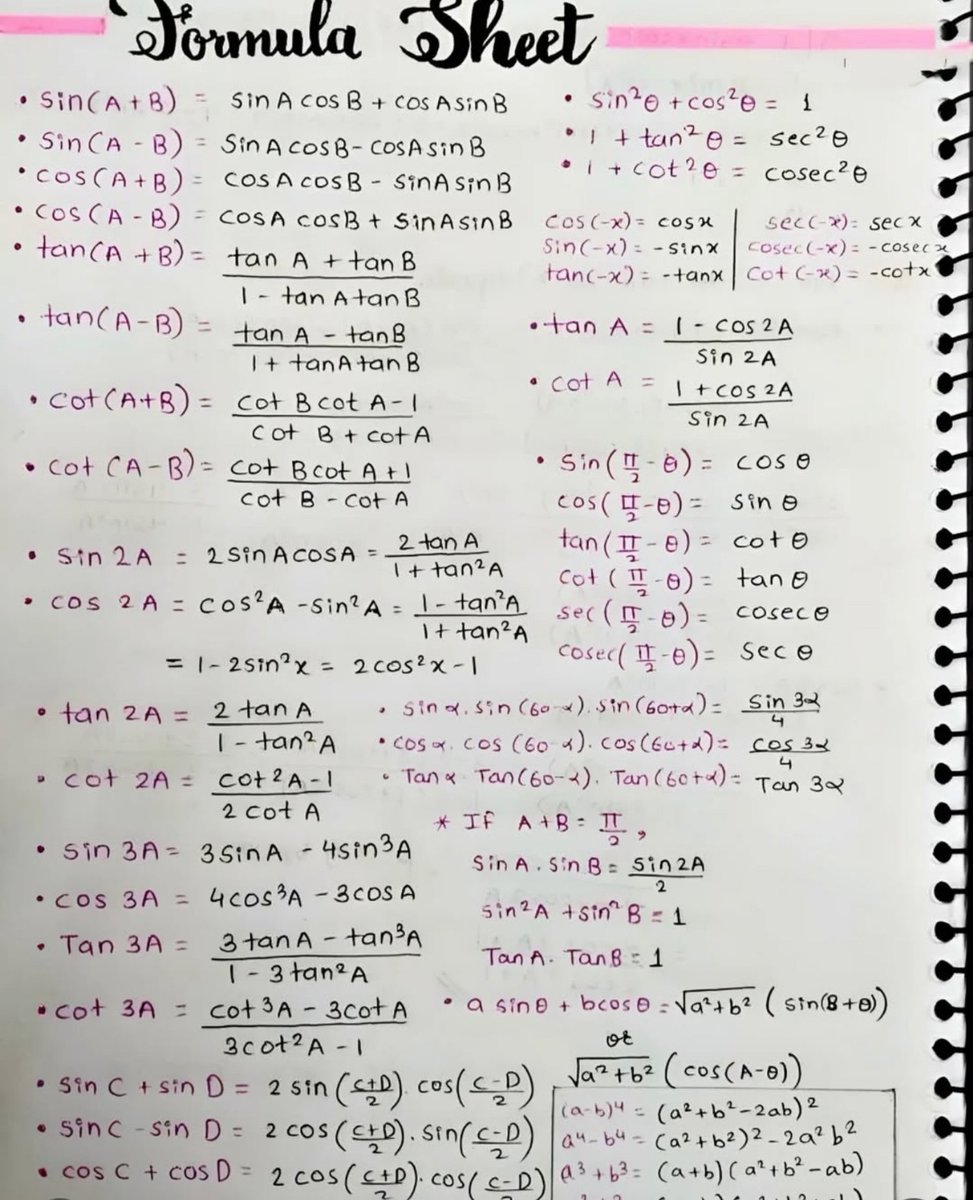 Formula Sheet
• sin(A + B) = sin A cos B + cos A sin B
• sin(A - B) = sin A cos B - cos A sin B
• cos(A + B) = cos A cos B - sin A sin B
• cos(A - B) = cos A cos B + sin A sin B
• tan(A + B) = (tan A + tan B) / (1 - tan A tan B)
• tan(A - B) = (tan A - tan B) / (1 + tan A tan B)
• cot(A + B) = (cot B cot A - 1) / (cot B + cot A)
• cot (A - B) = (cot B cot A + 1) / (cot B - cot A)
• sin 2A = 2 sin A cos A = 2 tan A / (1 + tan²A)
• cos 2A = cos²A - sin²A = (1 - tan²A) / (1 + tan²A)
= 1 - 2sin²x = 2cos²x - 1
• tan 2A = 2 tan A / (1 - tan²A)
• cot 2A = (cot²A - 1) / (2 cot A)
• sin 3A = 3 sin A - 4sin³A
• cos 3A = 4cos³A - 3cos A
• Tan 3A = (3 tan A - tan³A) / (1 - 3 tan²A)
• cot 3A = (cot³A - 3cot A) / (3cot²A - 1)
• sin C + sin D = 2 sin((C+D)/2). cos((C-D)/2)
• sin C - sin D = 2 cos((C+D)/2). sin((C-D)/2)
• cos C + cos D = 2 cos((C+D)/2). cos((C-D)/2)
• sin²θ + cos²θ = 1
• 1 + tan²θ = sec²θ
• 1 + cot²θ = cosec²θ
cos(-x) = cosx | sec(-x) = secx
sin(-x) = -sinx | cosec(-x) = -cosecx
tan(-x) = -tanx | cot(-x) = -cotx
• tan A = (1 - cos 2A) / sin 2A
• cot A = (1 + cos 2A) / sin 2A
• sin(π/2 - θ) = cos θ
cos(π/2 - θ) = sin θ
tan(π/2 - θ) = cot θ
cot(π/2 - θ) = tan θ
sec(π/2 - θ) = cosec θ
cosec(π/2 - θ) = sec θ
• sin α. sin (60-α). sin(60+α) = sin 3α / 4
• cos α. cos (60-α). cos(60+α) = cos 3α / 4
• Tan α Tan(60-α). Tan(60+α) = Tan 3α
* If A + B = π/2,
sin A. sin B = sin 2A / 2
sin²A + sin² B = 1
Tan A. Tan B = 1
• a sin θ + b cos θ = √(a²+b²) (sin(B+θ))
or
√(a²+b²) (cos(A-θ))
(a-b)⁴ = (a²+b²-2ab)²
a⁴-b⁴ = (a²+b²)²-2a²b²
a³+b³ = (a+b)(a²+b²-ab)